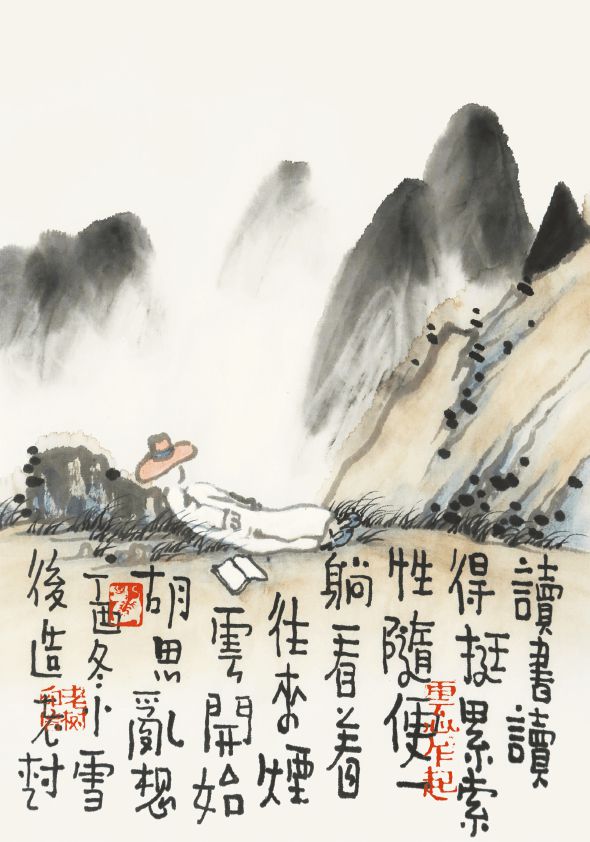 讀書讀
得挺累索
性隨便一
躺看着
往來煙
雲開始
胡思亂想
丁酉冬小雪
後造老树